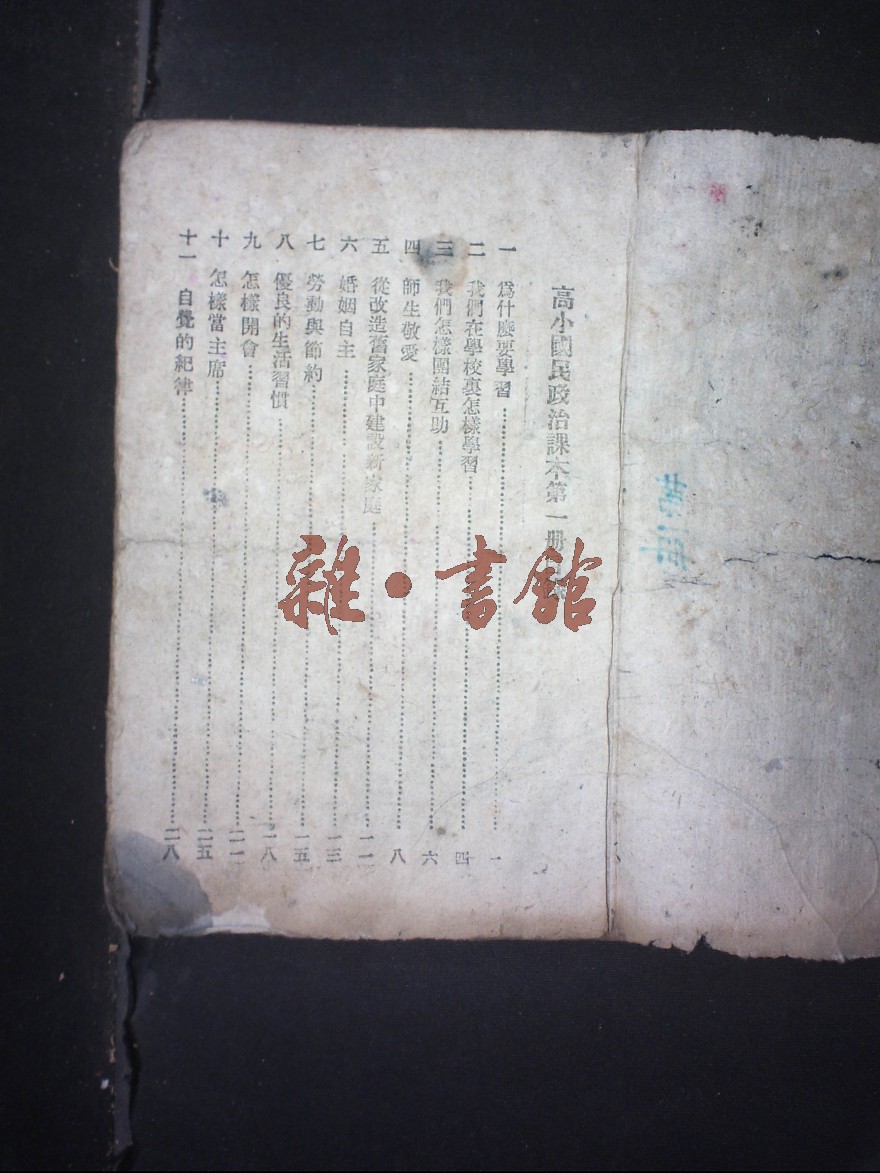 高小國民政治課本第一册
一 爲什麽要學習 一
二 我們在學校裏怎樣學習 四
三 我們怎樣團結互助 六
四 師生敬愛 八
五 從改造舊家庭中建設新家庭 一一
六 婚姻自主 一三
七 勞動與節約 一五
八 優良的生活習慣 一八
九 怎樣開會 二一
十 怎樣當主席 二五
十一 自覺的紀律 二八
雜·書館